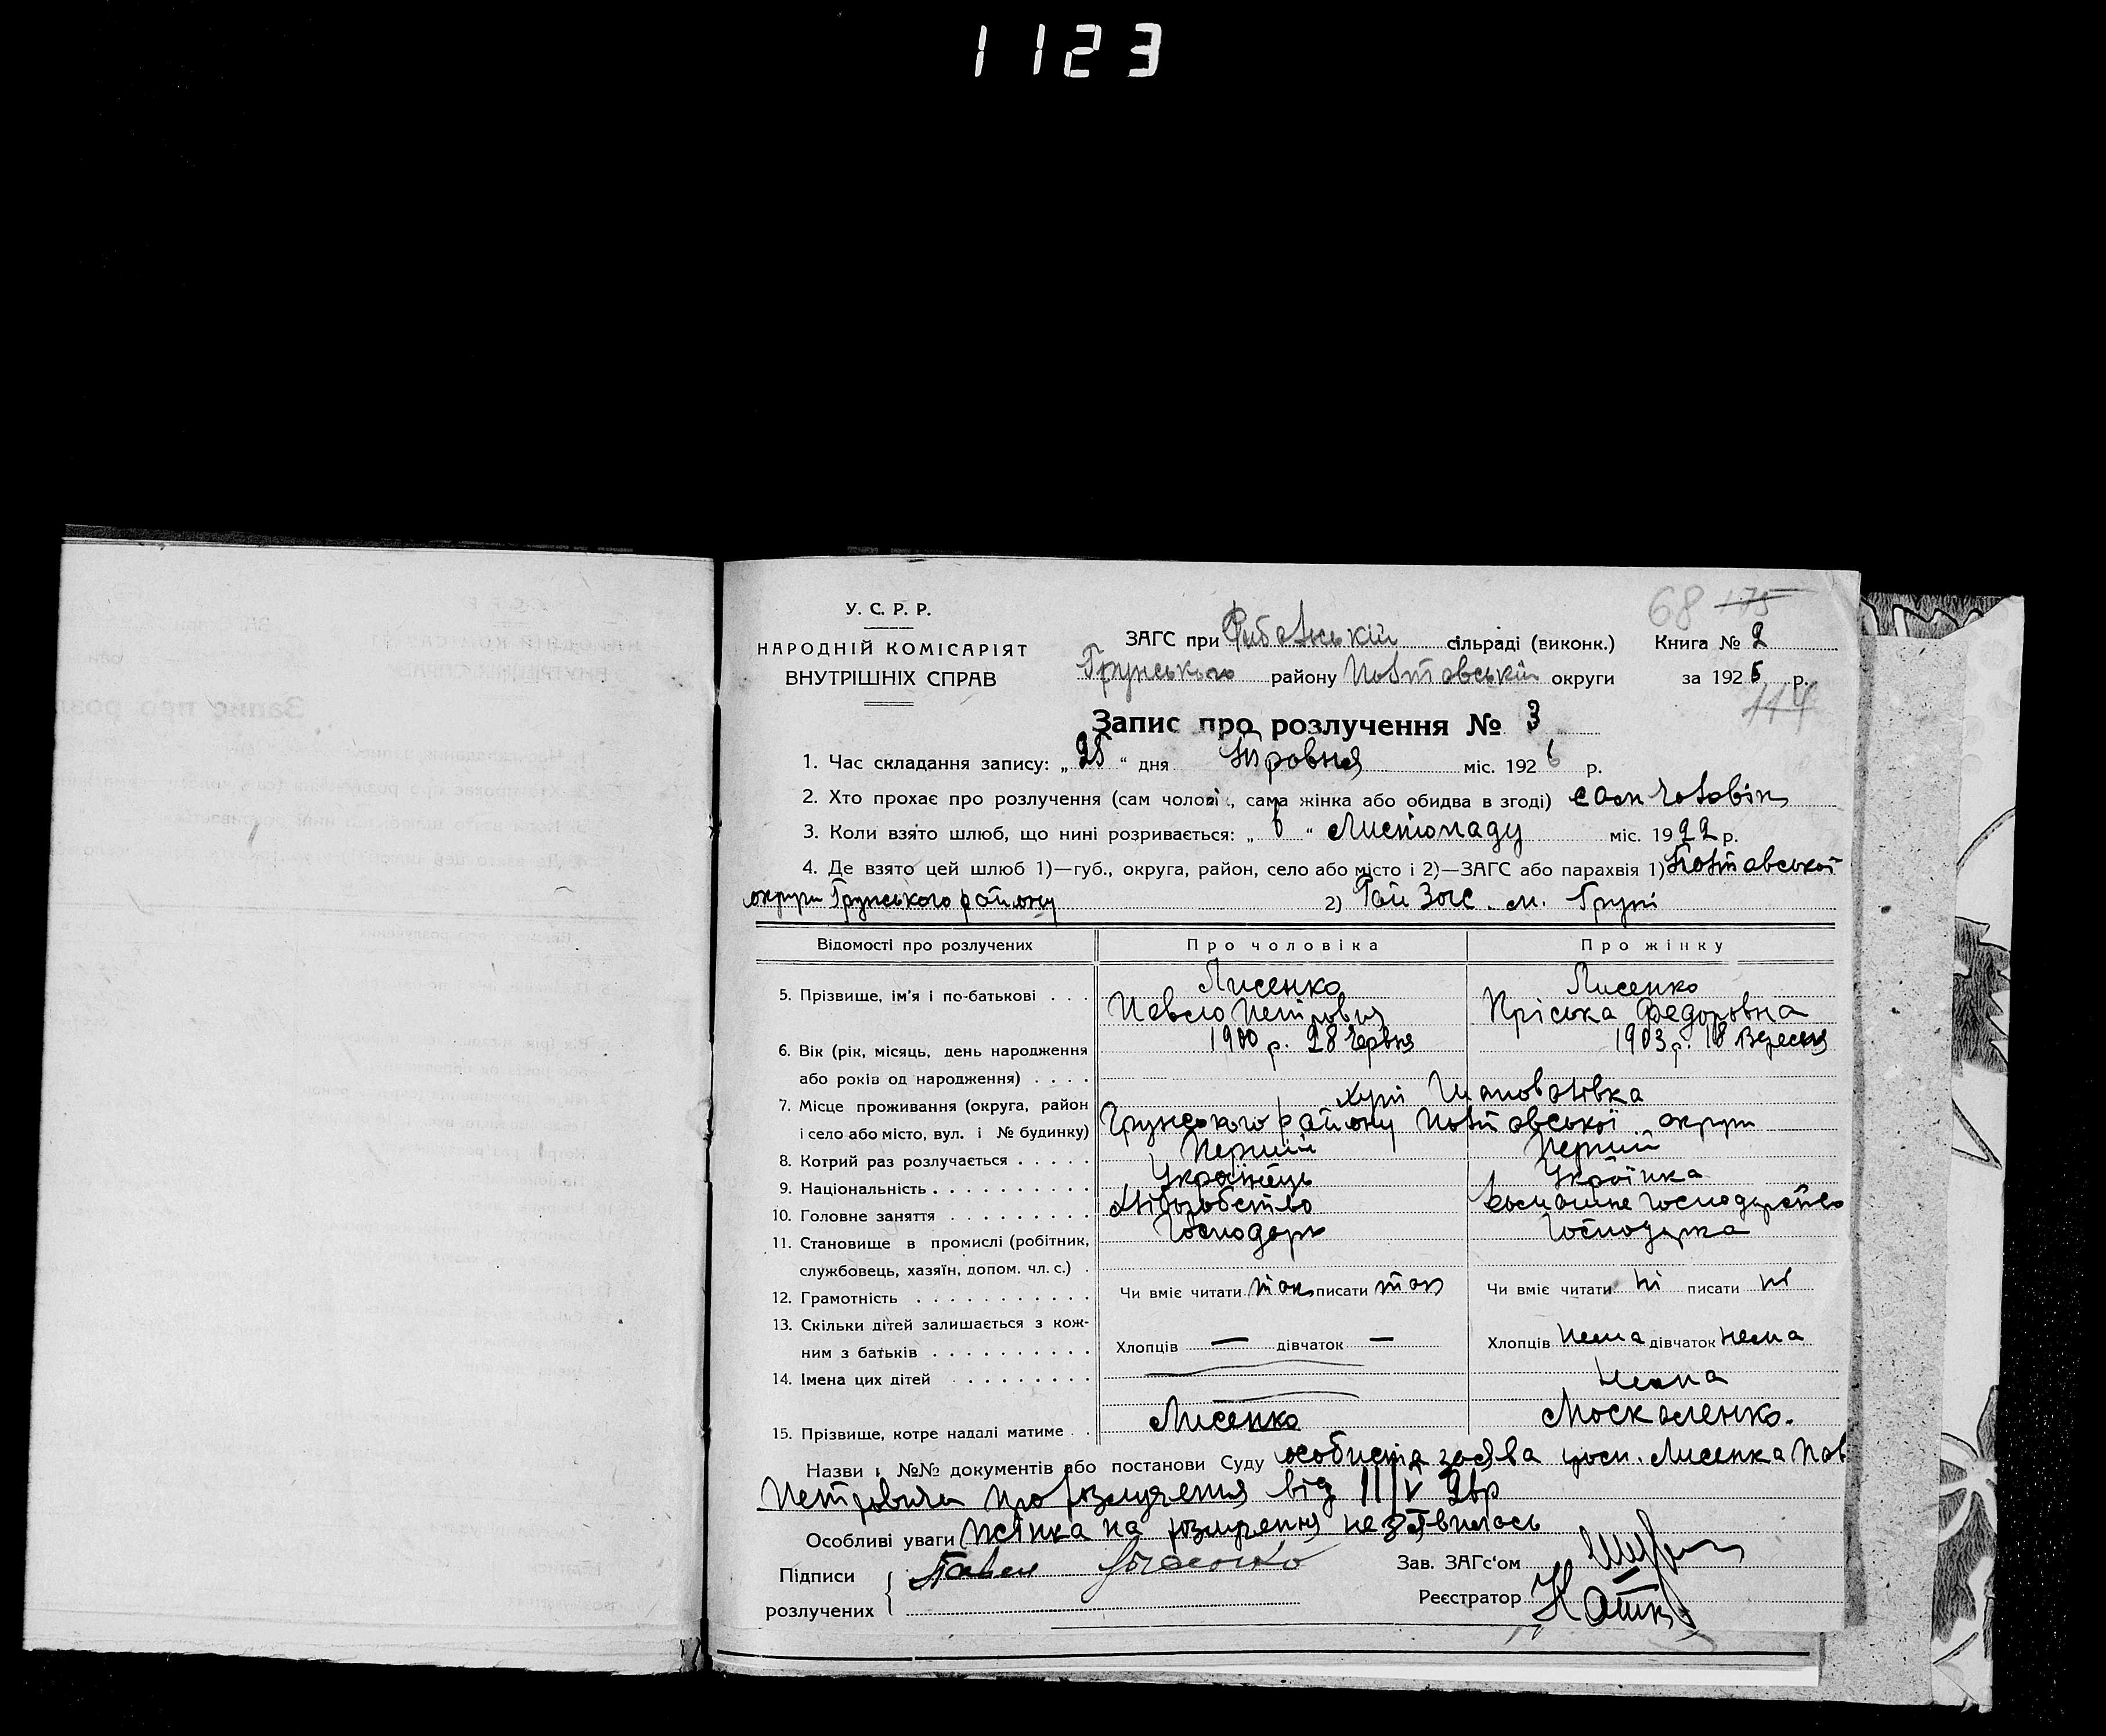 1123
68 175
У. С. Р. Р.
НАРОДНІЙ КОМІСАРІЯТ
ВНУТРІШНІХ СПРАВ
ЗАГС при сільраді (виконк.) Книга № 2
Грунського району Полтавській округи за 1926 р.
114
Запис про розлучення № 3
1. Час складання запису: „25“ дня міс. 1926 р.
2. Хто прохає про розлучення (сам чоловік, сама жінка або обидва в згоді) сам чоловік
3. Коли взято шлюб, що нині розривається: „6“ Листопаду міс. 1922 р.
4. Де взято цей шлюб 1)—губ., округа, район, село або місто і 2)—ЗАГС або парахвія 1) Полтавської
округи Грунського району 2) Рай Загс м. Груні
Відомості про розлучених Про чоловіка Про жінку
5. Прізвище, ім'я і по-батькові . . . Лисенко Лисенко
Павло Петрович Пріська Федоровна
6. Вік (рік, місяць, день народження 1900 р. 28 Червня 1903 р. 18 Вересня
або років од народження) . . . .
хут Шаповалівка
7. Місце проживання (округа, район Грунського району Полтавської округи
і село або місто, вул. і № будинку)
8. Котрий раз розлучається . . . . . Перший Перший
9. Національність . . . . . . . . . . Українець Українка
10. Головне заняття . . . . . . . . . Хліборобство домашнє господарство
11. Становище в промислі (робітник, Господарь Господарка
службовець, хазяїн, допом. чл. с.) .
12. Грамотність . . . . . . . . . . . Чи вміє читати так писати так Чи вміє читати ні писати ні
13. Скільки дітей залишається з кож-
ним з батьків . . . . . . . . . . Хлопців — дівчаток — Хлопців нема дівчаток нема
14. Імена цих дітей . . . . . . . . нема
15. Прізвище, котре надалі матиме . . Лисенко Москаленко.
Назви і №№ документів або постанови Суду особиста заява Лисенка Пав
Петровича про розлучення від 11/V 26р
Особливі уваги Жінка на розлучення не з'явилось
Підписи Павел Зав. ЗАГс'ом
розлучених Реєстратор